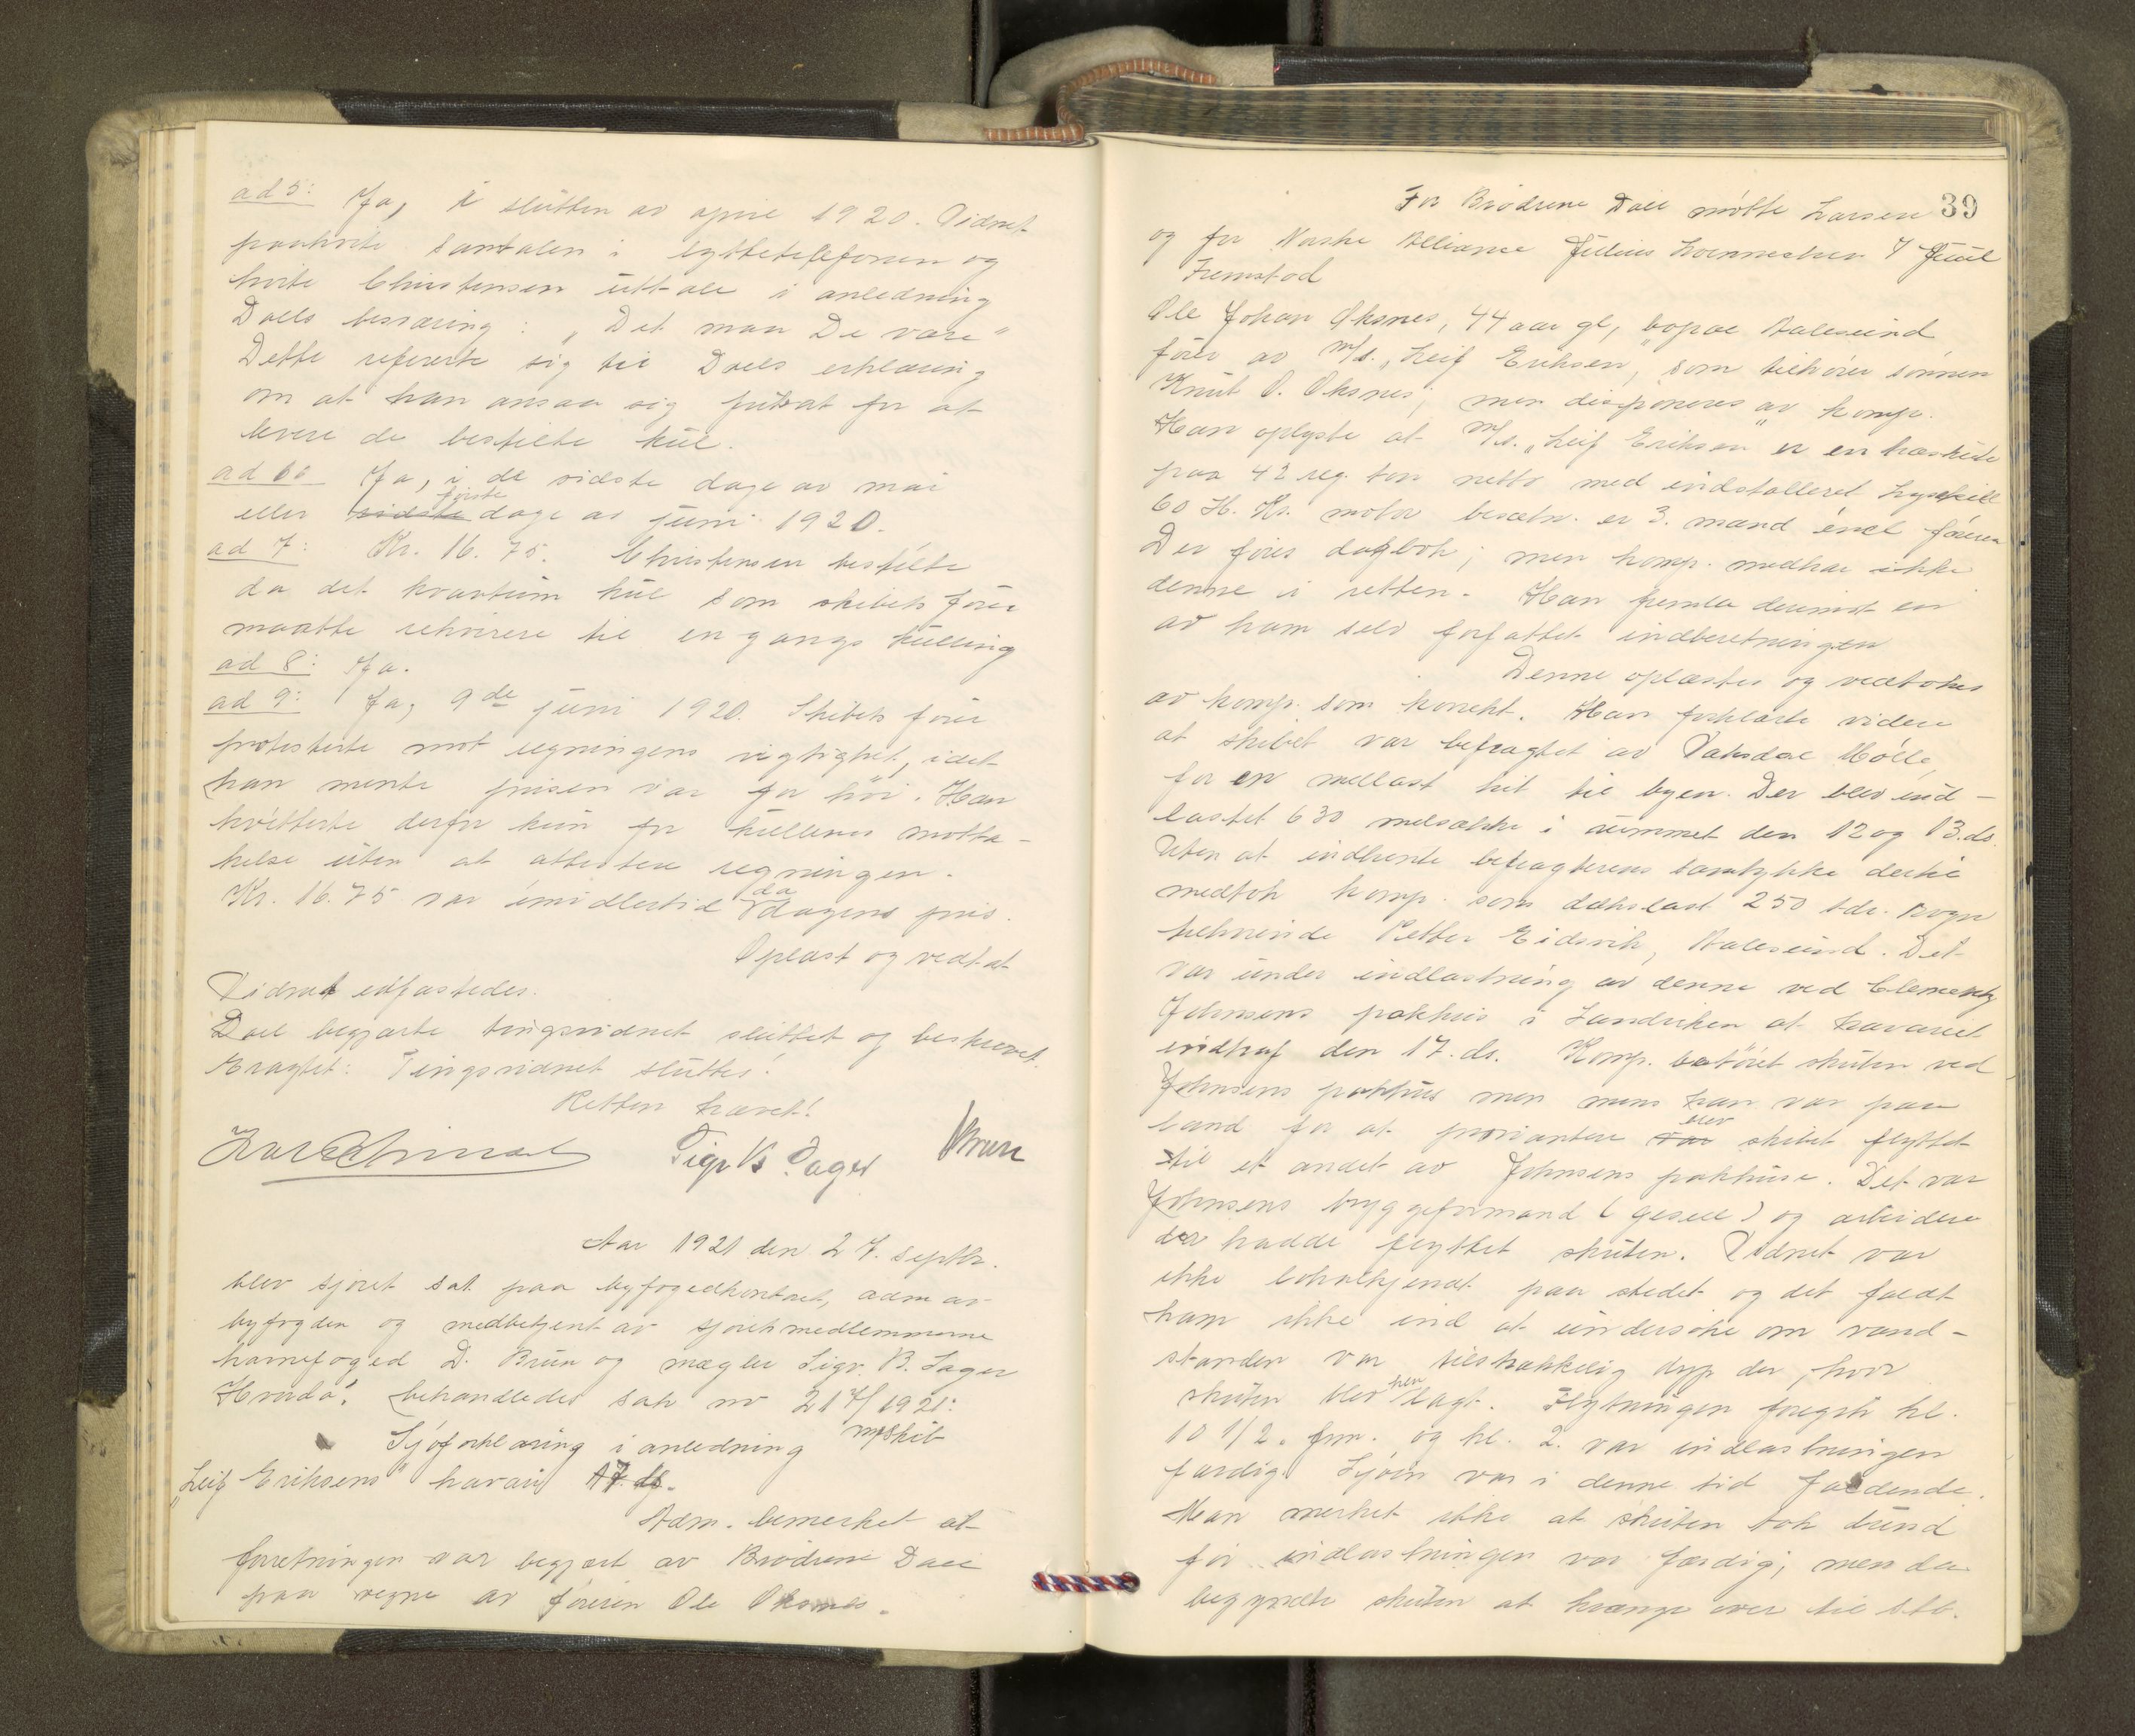 ad 5: Ja, i slutten av april 1920. Vidnet
paahørte samtalen i lyttetelefonen og
hørte Christensen uttale i anledning
Dalls besværing: "Det maa De være"
Dette refererte sig til Dalls erklæring
om at han ansaa sig pliktat for at
levere de bestilte kul.
ad 6: Ja, i de sidste dage av mai
eller første dage av juni 1920.
ad 7: Kr. 16.75. Christensen bestilte
da det kvantum kul som skibets fører
maatte rekvirere til en gangs kulling
ad 8: Ja.
ad 9: Ja, 9de juni 1920. Skibets fører
protesterte mot regningens rigtighet, idet
han mente prisen var for høi. Han
kvitterte derfor kun for kullenes motta-
kelse uten at attestere regningen.
Kr. 16.75 var imidlertid da dagens pris.
Oplæst og vedtat
Vidnet
Dall begjærte tingsvidnet sluttet og beskrevet.
Eragtet: Tingsvidnet sluttes!
Retten hævet!
Sigv. B. Sager DBrun
Aar 1921 den 27. septbr.
blev sjøret sat paa byfogedkontoret, adm av
byfogden og medbetjent av sjøretsmedlemmerne
havnefoged D. Brun og mægler Sigv. B. Sager
Hvorda! behandledes sak nr 217/1921:
Sjøforklaring i anledning m/skib
"Leif Eriksens" havari 17. ds.
Adm. bemerket at
forretningen var begjært av Brødrene Dall
paa vegne av føreren Ole Oksnes.
39
For Brødrene Dall møtte Larsen
og for Norske Alliance Julius
Fremstod
Ole Johan Oksnes, 44 aar gl, bopæl Aalesund
fører av m/s. "Leif Eriksen", som tilhører sønnen
Knut O. Oksnes, men disponeres av komp.
Han oplyste at m/s. "Leif Eriksen" er en træskute
paa 42 reg. ton netto med indstalleret
60 H. Kr. motor besætn. er 3. mand incl føreren
Der føres dagbok; men komp. medhar ikke
denne i retten. Han fremla derimot en
av ham selv forfattet indberetningen
Denne oplæstes og vedtokes
av komp. som korrekt. Han forklarte videre
at skibet var befragtet av Vaksdal Mølle,
for en mellast hit til byen. Der blev ind-
lastet 630 melsække i rummet den 12 og 13. ds.
Uten at indhente befragterens samtykke dertil
medtok komp. som dækslast 250 tdr. rogn
tilhørende Petter Eidsvik, Aalesund. Det
var under indlastning av denne ved Clement
Johnsens pakhus i Sandviken at havariet
indtraf den 17. ds. Komp. skuten ved
Johnsens pakhus men mens han var paa
land for at proviantere blev skibet flyttet
til et andet av Johnsens pakhuse. Det var
Johnsens bryggeformand (gesell) og arbeidere
der hadde flyttet skuten. Vidnet var
ikke lokalkjendt paa stedet og det faldt
ham ikke ind at undersøke om vand-
standen var tilstrækkelig dyp der, hvor
skuten blev hen lagt. Flytningen foregik kl.
10 1/2. fm. og kl. 2. var indlastningen
færdig. Sjøen var i denne tid faldende.
Man merket ikke at skuten tok bund
før indlastningen var færdig; men da
begyndte skuten at hænge over til stb.